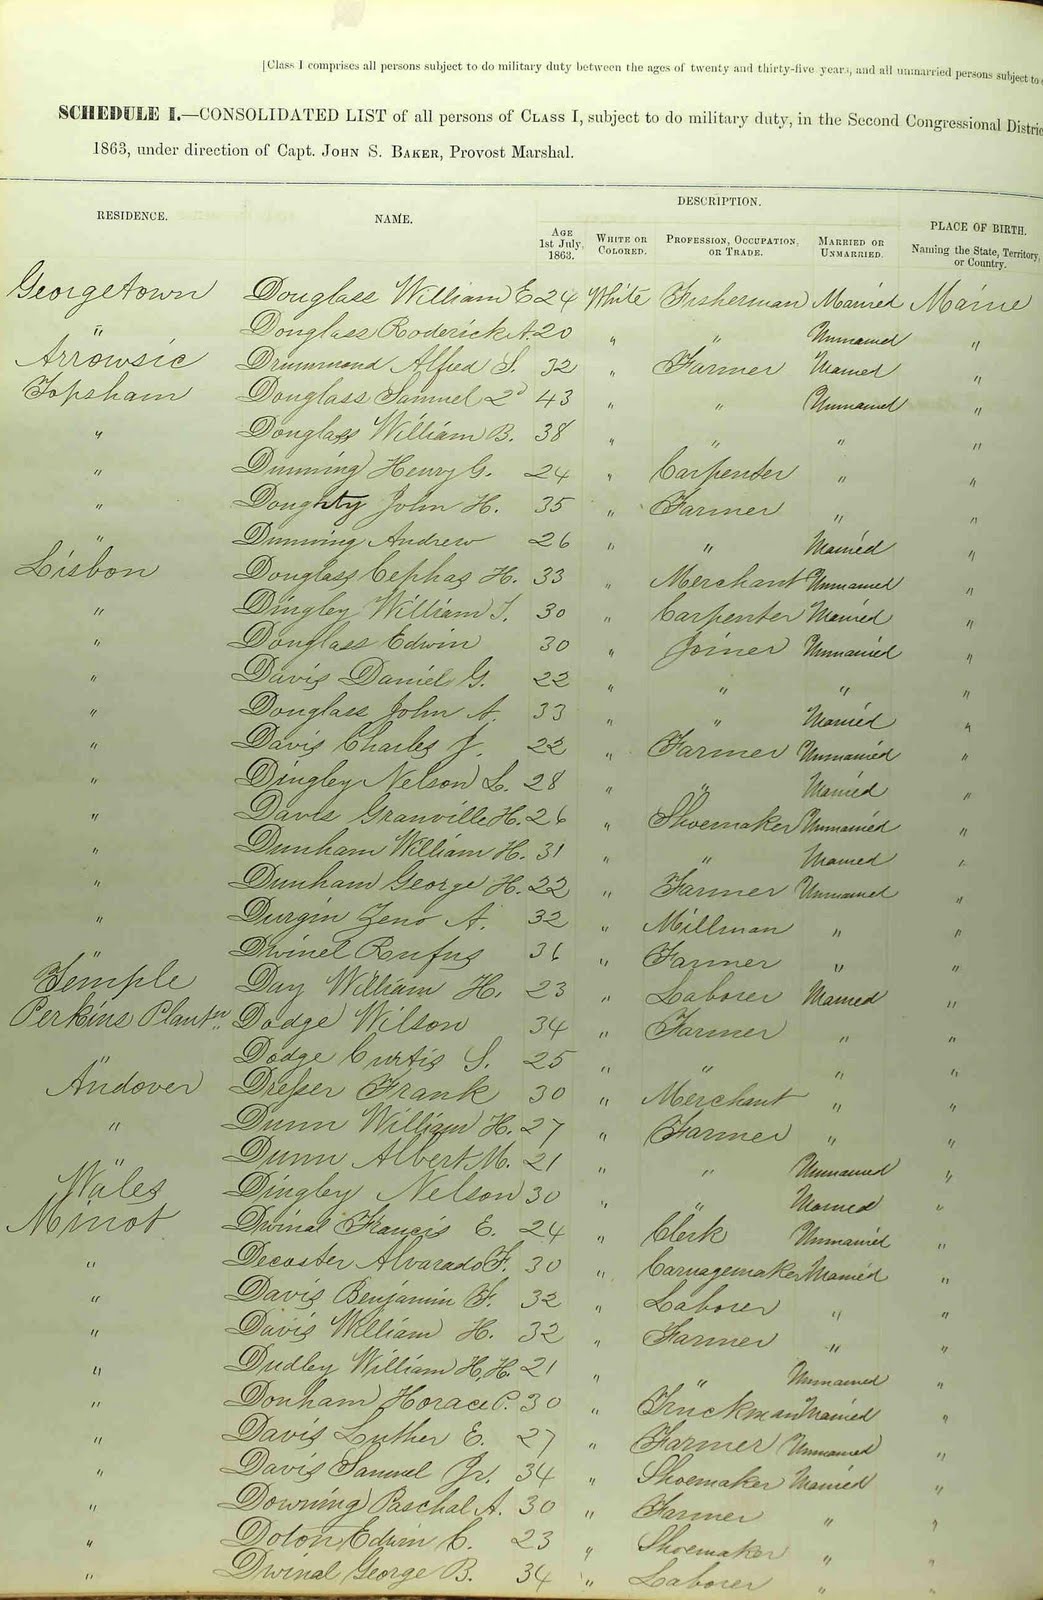 [Class I comprises all persons subject to do military duty between the ages of twenty and thirty-five years, and all unmarried persons subject to
SCHEDULE I.—CONSOLIDATED LIST of all persons of CLASS I, subject to do military duty, in the Second Congressional Distric
1863, under direction of Capt. JOHN S. BAKER, Provost Marshal.
DESCRIPTION.
RESIDENCE. NAME. AGE 1st July, 1863. WHITE OR COLORED. PROFESSION, OCCUPATION, OR TRADE. MARRIED OR UNMARRIED. PLACE OF BIRTH. Naming the State, Territory, or Country.
Georgetown Douglass William E 24 White Fisherman Married Maine
" Douglass Roderick A. 20 " " Unmarried "
Arrowsic Drummond Alfred S. 32 " Farmer Married "
Topsham Douglass Samuel 2d 43 " " Unmarried "
" Douglass William B. 38 " " " "
" Dunning Henry G. 24 " Carpenter " "
" Doughty John H. 35 " Farmer " "
" Dunning Andrew 26 " " Married "
Lisbon Douglass Cephas H. 33 " Merchant Unmarried "
" Dingley William T. 30 " Carpenter Married "
" Douglass Edwin 30 " Joiner Unmarried "
" Davis Daniel G. 22 " " " "
" Douglass John A. 33 " " Married "
" Davis Charles J. 22 " Farmer Unmarried "
" Dingley Nelson L. 28 " " Married "
" Davis Granville H. 26 " Shoemaker Unmarried "
" Dunham William H. 31 " " Married "
" Dunham George H. 22 " Farmer Unmarried "
" Durgin Zeno A. 32 " Millman " "
" Dwinel Rufus 36 " Farmer " "
Temple Day William H. 23 " Laborer Married "
Perkins Plantn Dodge Wilson 34 " Farmer " "
" Dodge Curtis S. 25 " " " "
Andover Dresser Frank 30 " Merchant " "
" Dunn William H. 27 " Farmer " "
" Dunn Albert M. 21 " " Unmarried "
Wales Dingley Nelson 30 " " Married "
Minot Dwinal Francis E. 24 " Clerk Unmarried "
" Decoster Alvarado F. 30 " Carriagemaker Married "
" Davis Benjamin F. 32 " Laborer " "
" Davis William H. 32 " Farmer " "
" Dudley William H. H. 21 " " Unmarried "
" Donham Horace P. 30 " Truckman Married "
" Davis Luther E. 27 " Farmer Unmarried "
" Davis Samuel Jr. 34 " Shoemaker Married "
" Downing Paschal A. 30 " Farmer " "
" Doton Edwin C. 23 " Shoemaker " "
" Dwinal George B. 34 " Laborer " "